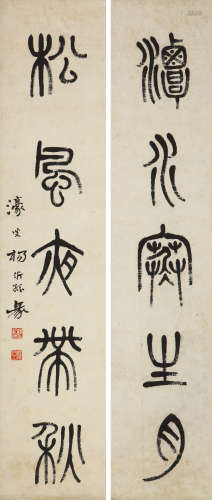 潭水寒生月
松風夜帶秋
濠叟楊沂孫篆